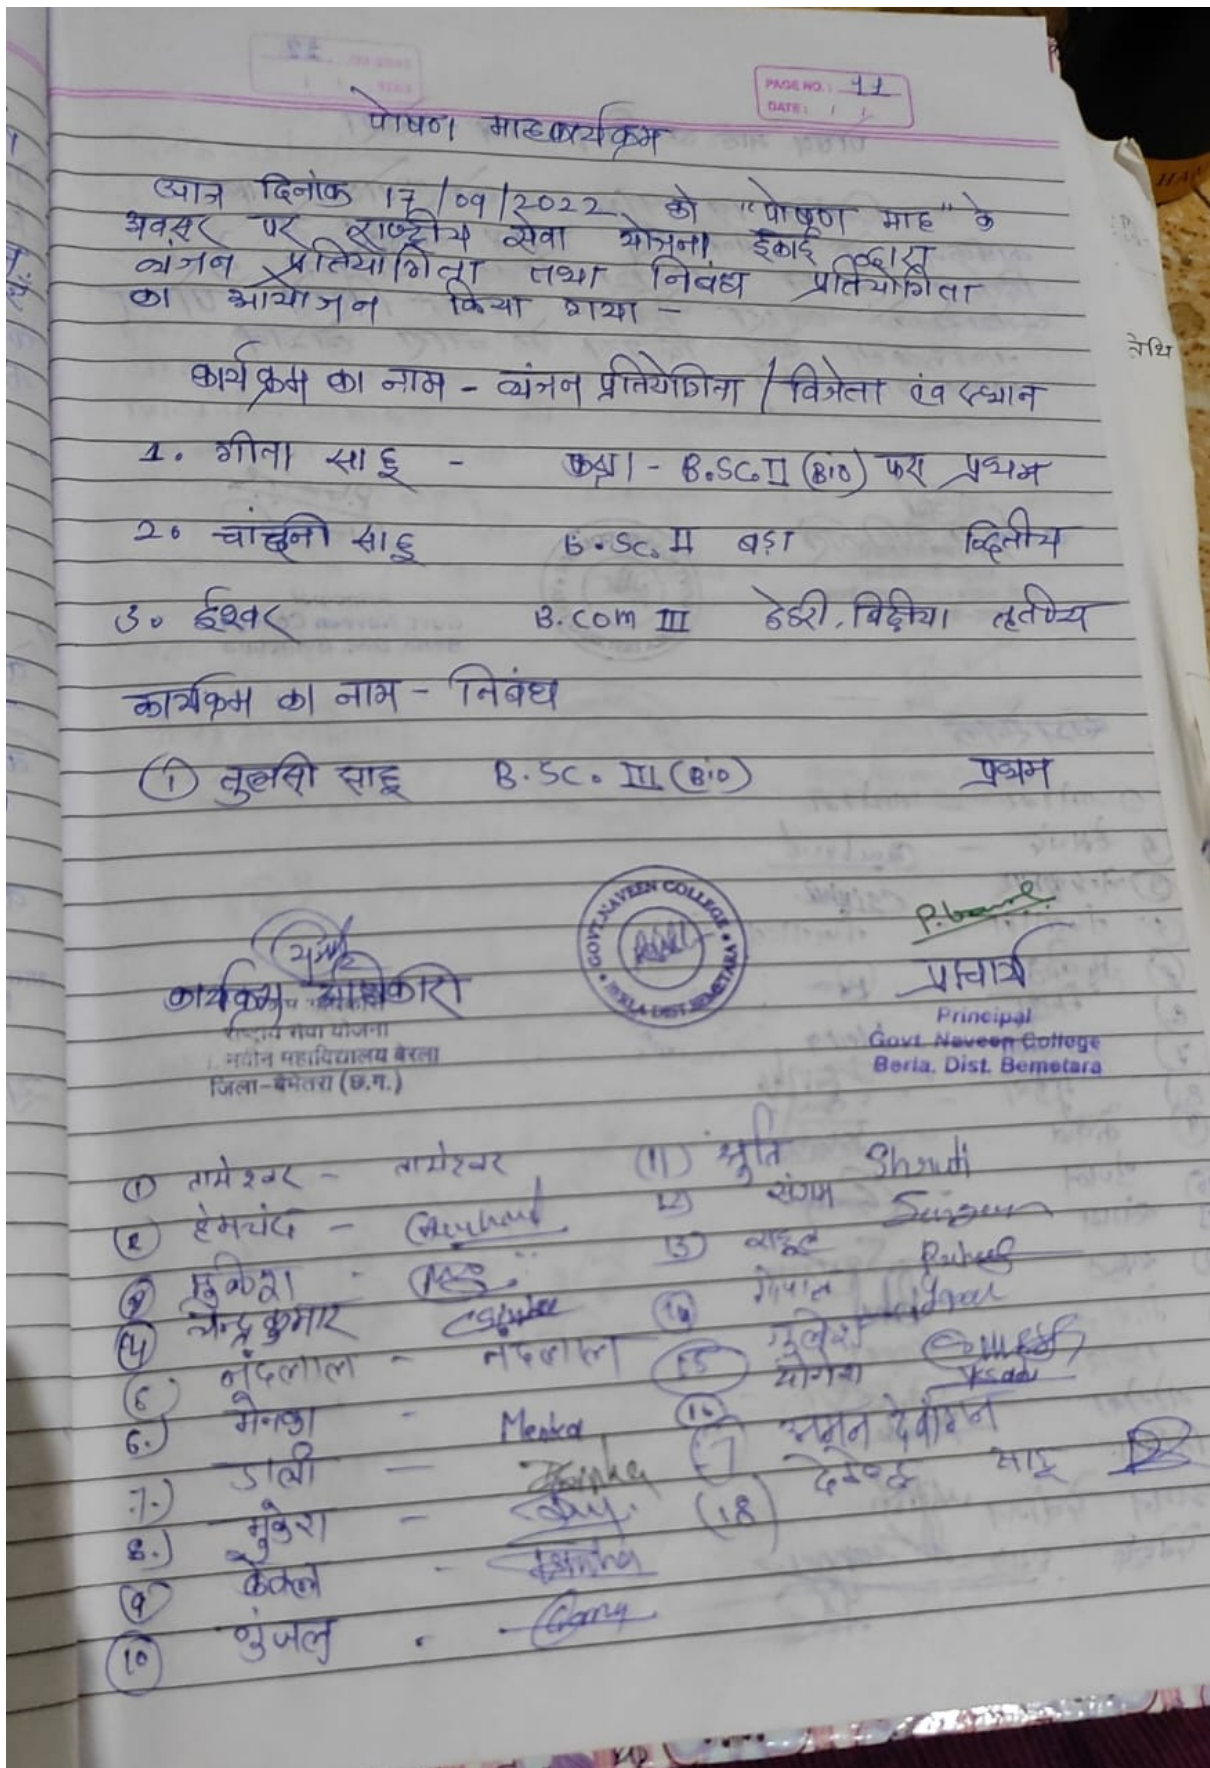 PAGE NO.: 11
DATE: / /
पोषण माह कार्यक्रम
आज दिनांक 17/09/2022 को "पोषण माह" के
अवसर पर राष्ट्रीय सेवा योजना ईकाई व्दारा
व्यंजन प्रतियोगिता तथा निबंध प्रतियोगिता
का आयोजन किया गया -
कार्यक्रम का नाम - व्यंजन प्रतियोगिता / विजेता एंव स्थान
1. गीता साहू - कक्षा - B.SC.II (Bio) फरा प्रथम
2. चांदनी साहू B.SC. II बड़ा व्दितीय
3. ईश्वर B.COM III
कार्यक्रम का नाम - निबंध
(1) तुलसी साहू B.SC. III (Bio) प्रथम
GOVT. NAVEEN COLLEGE
BERLA DIST BEMETARA
P.
कार्यक्रम अधिकारी
प्राचार्य
राष्ट्रीय सेवा योजना
नवीन महाविद्यालय बेरला
जिला-बेमेतरा (छ.ग.)
Principal
Govt. Naveen College
Berla. Dist. Bemetara
(1) तामेश्वर - तामेश्वर
(2) हेमचंद -
(3)
(4) चन्द्र कुमार
(5) नंदलाल - नंदलाल
6.) मेनका - Menka
7.) डाली -
8.) मुकेश -
(9) केवल -
(10)
(11) श्रुति Shruti
12) संगम
13) राहुल Rahul
(14) गोपाल
(15)
(16) योगेश
17 अमन देवांगन
(18) साहू
तिथि